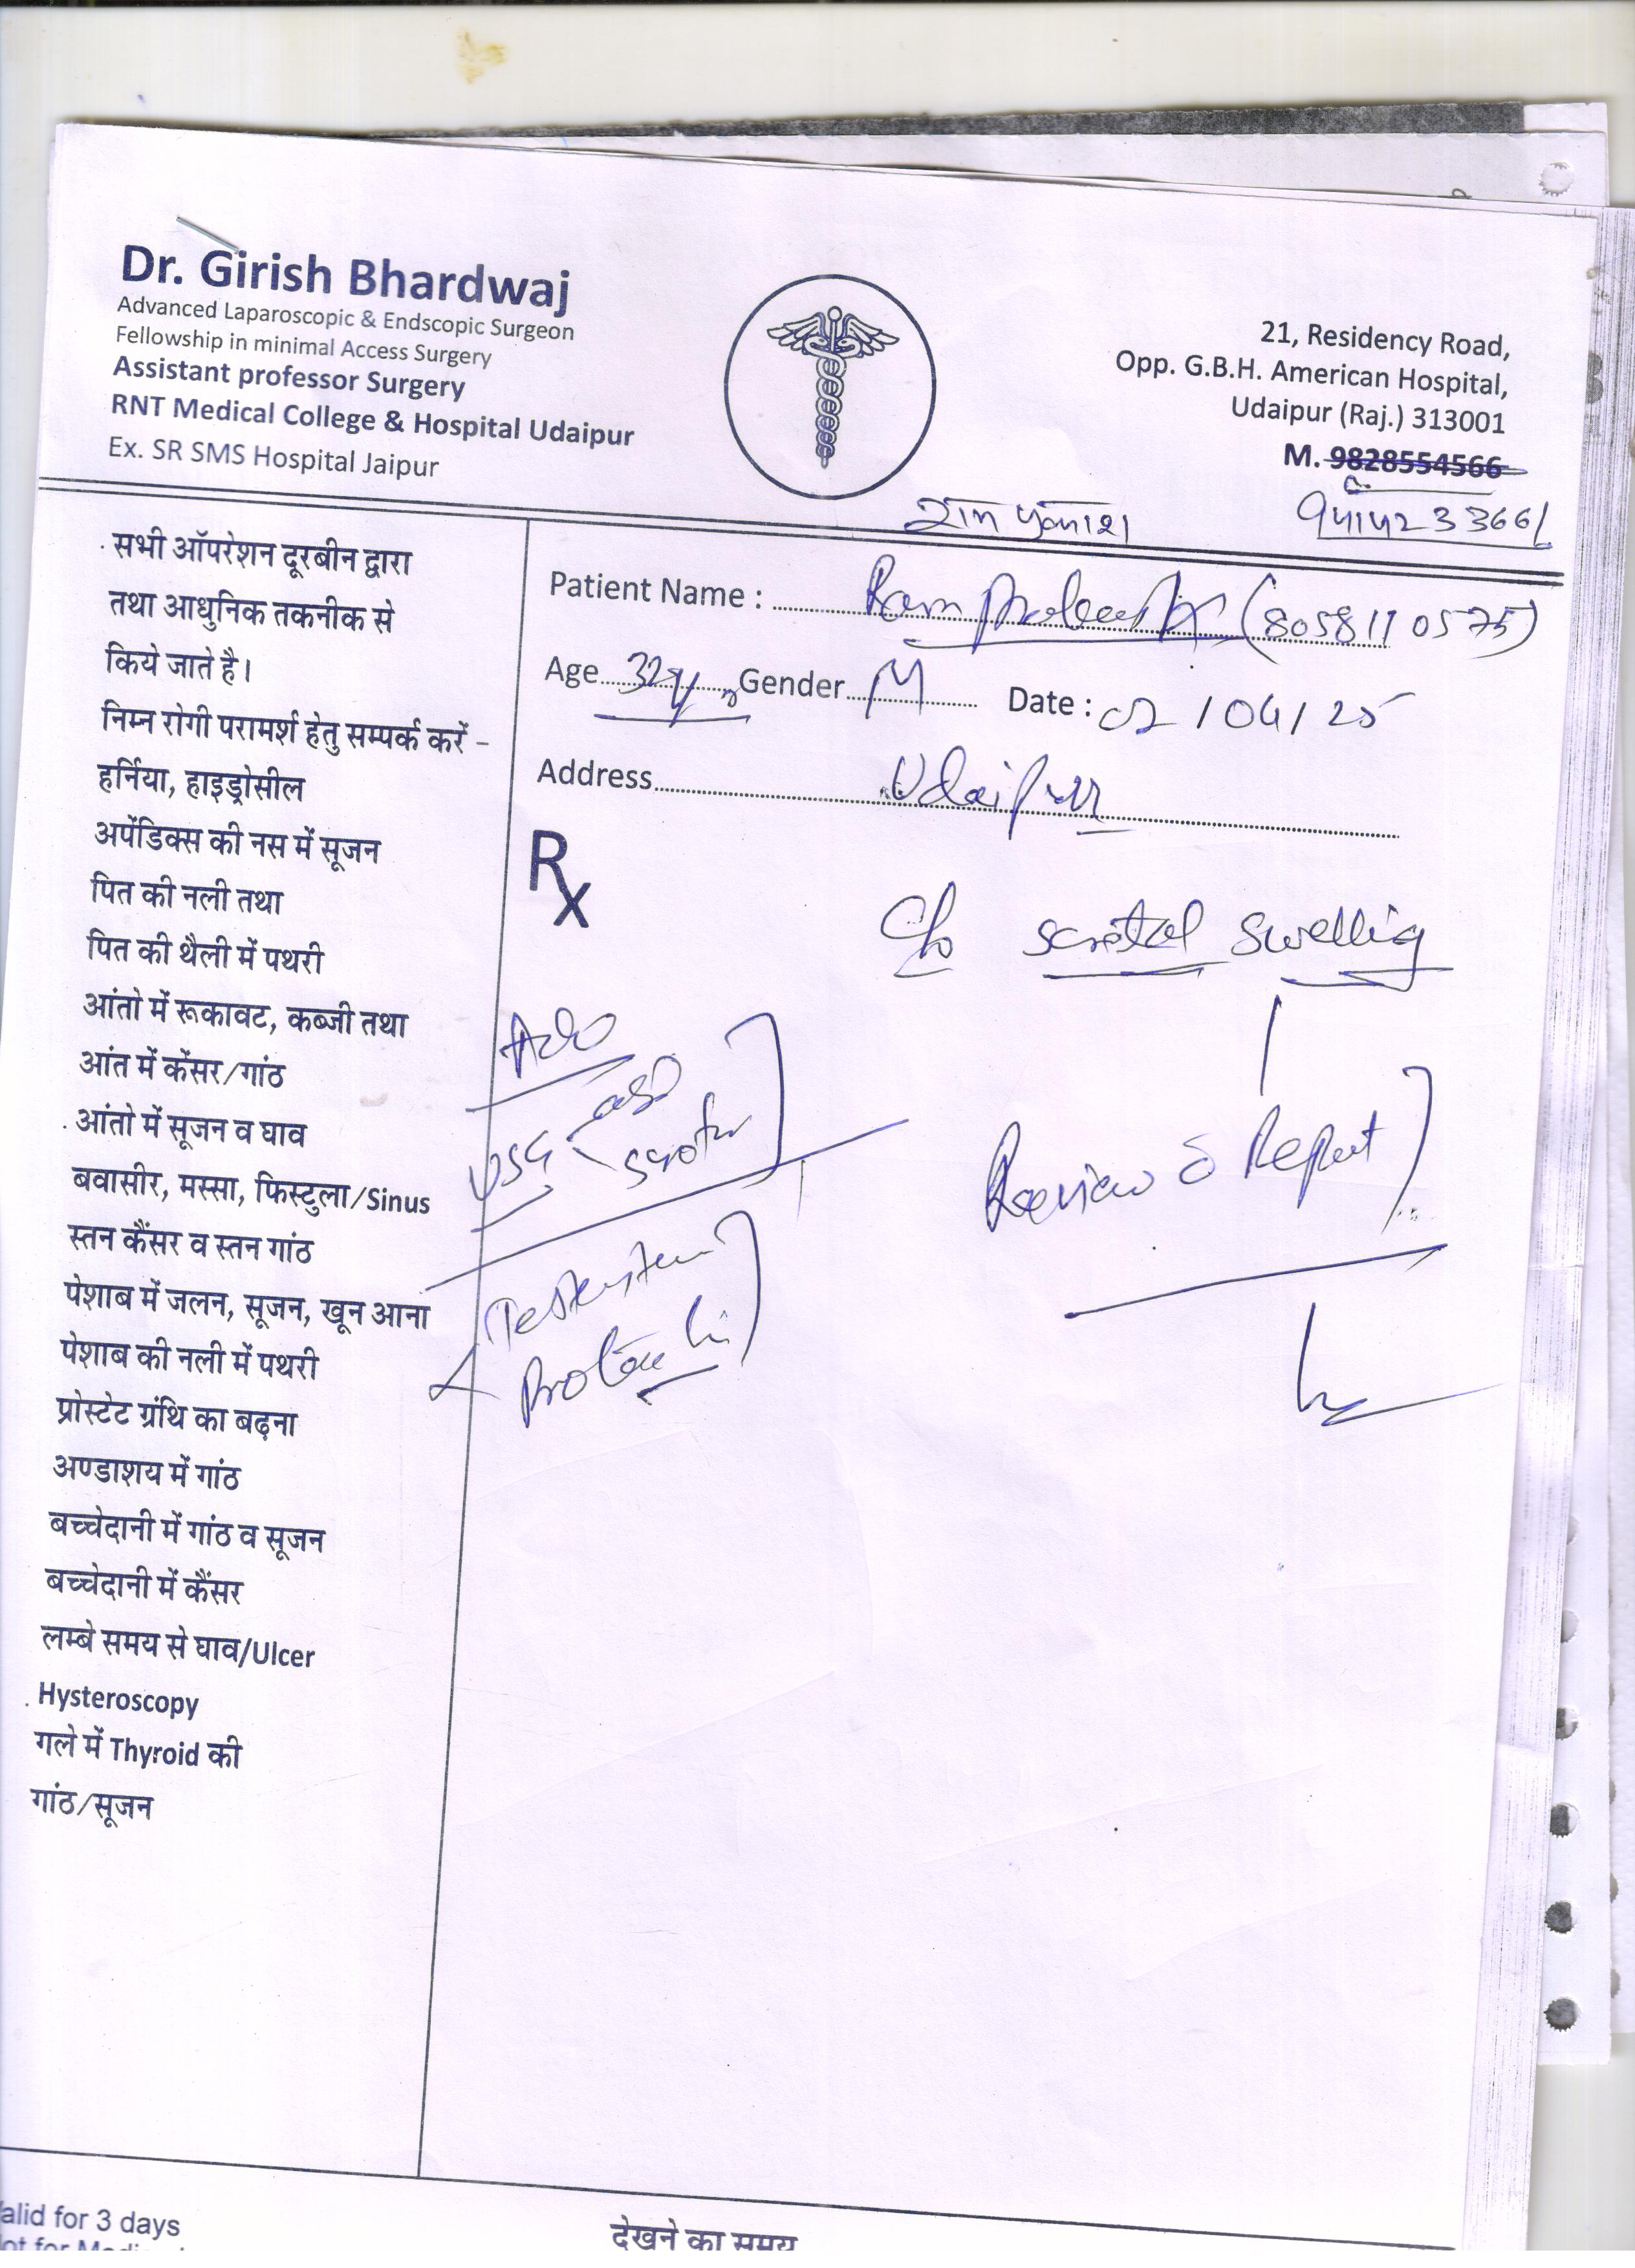 Dr. Girish Bhardwaj
Advanced Laparoscopic & Endscopic Surgeon
Fellowship in minimal Access Surgery
Assistant professor Surgery
RNT Medical College & Hospital Udaipur
Ex. SR SMS Hospital Jaipur
21, Residency Road,
Opp. G.B.H. American Hospital,
Udaipur (Raj.) 313001
M. 9828554566
राम प्रकाश
सभी ऑपरेशन दूरबीन द्वारा
तथा आधुनिक तकनीक से
किये जाते है।
निम्न रोगी परामर्श हेतु सम्पर्क करें -
हर्निया, हाइड्रोसील
अपेंडिक्स की नस में सूजन
पित की नली तथा
पित की थैली में पथरी
आंतो में रूकावट, कब्जी तथा
आंत में केंसर/गांठ
आंतो में सूजन व घाव
बवासीर, मस्सा, फिस्टुला/Sinus
स्तन कैंसर व स्तन गांठ
पेशाब में जलन, सूजन, खून आना
पेशाब की नली में पथरी
प्रोस्टेट ग्रंथि का बढ़ना
अण्डाशय में गांठ
बच्चेदानी में गांठ व सूजन
बच्चेदानी में कैंसर
लम्बे समय से घाव/Ulcer
Hysteroscopy
गले में Thyroid की
गांठ/सूजन
Patient Name : Ram Prakash (8058110575)
Age 32 yrs Gender M Date : 02/04/25
Address Udaipur
Rx
C/o scrotal swelling
Adv
USG
scrotum
Review c Report
Valid for 3 days
देखने का समय